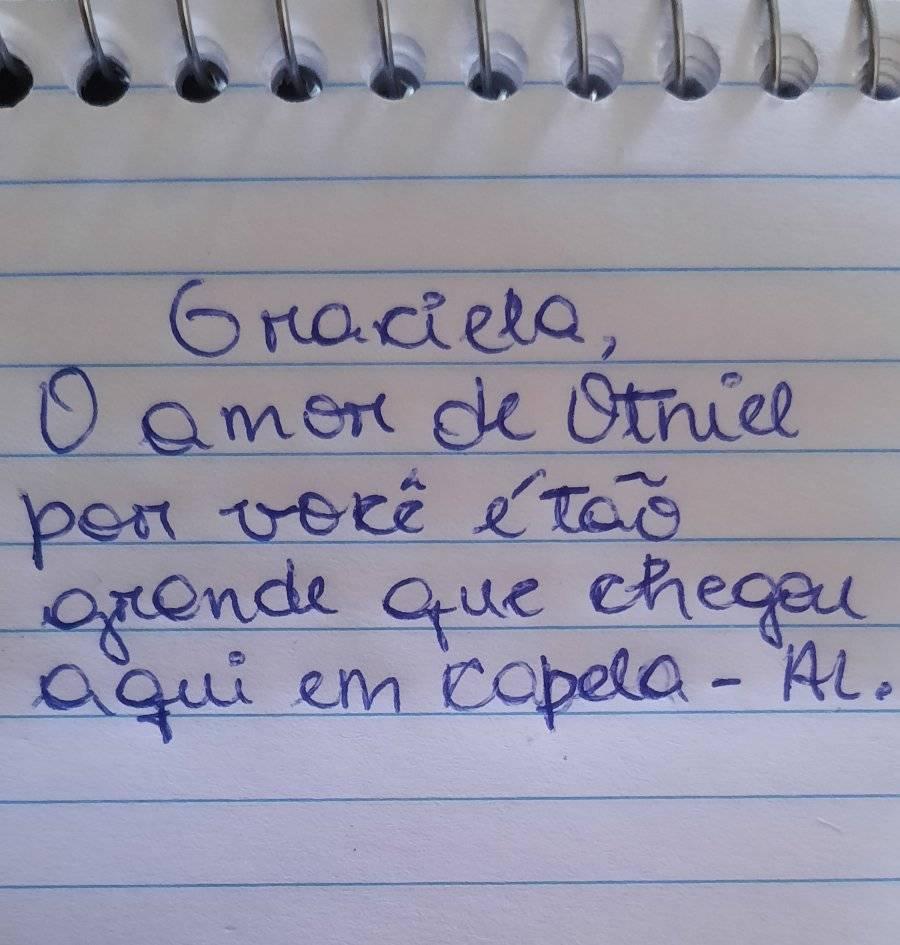 Graciela,
O amor de Otniel
por você é tão
grande que chegou
aqui em Capela - AL.